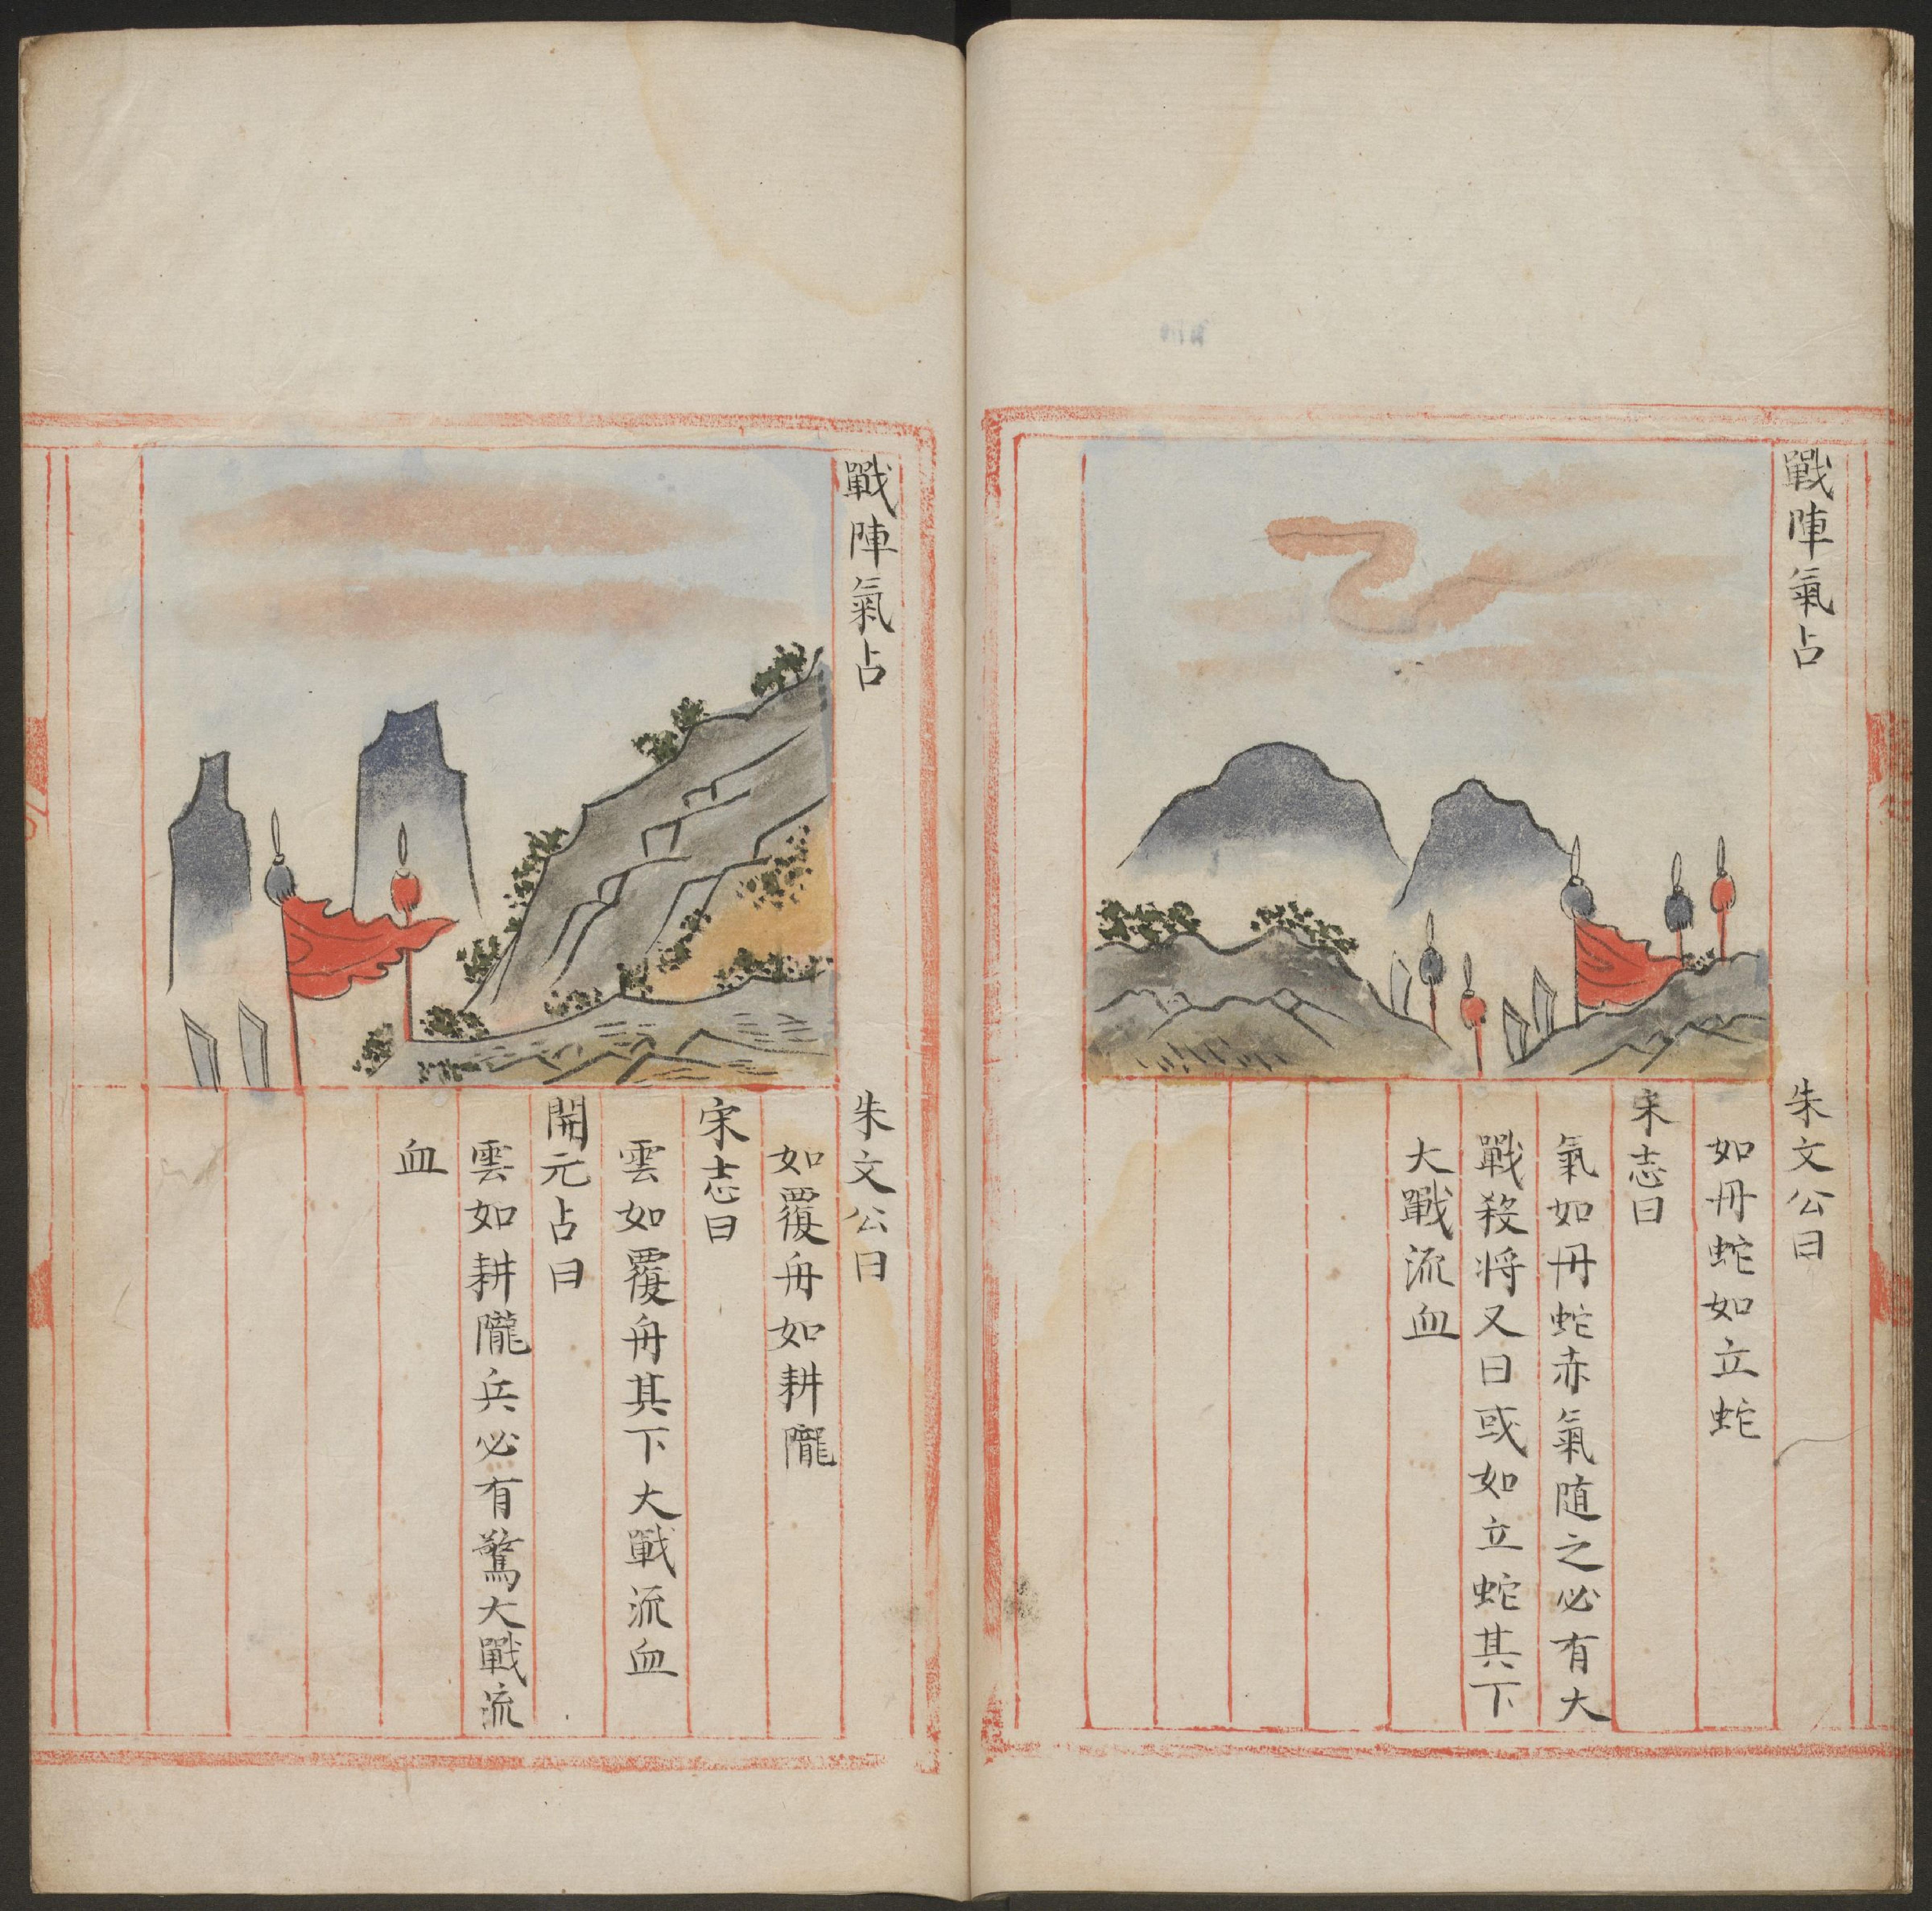 戰陣氣占
朱文公曰
如丹蛇如立蛇
宋志曰
氣如丹蛇赤氣随之必有大
戰殺将又曰或如立蛇其下
大戰流血
戰陣氣占
朱文公曰
如覆舟如耕隴
宋志曰
雲如覆舟其下大戰流血
開元占曰
雲如耕隴兵必有驚大戰流
血